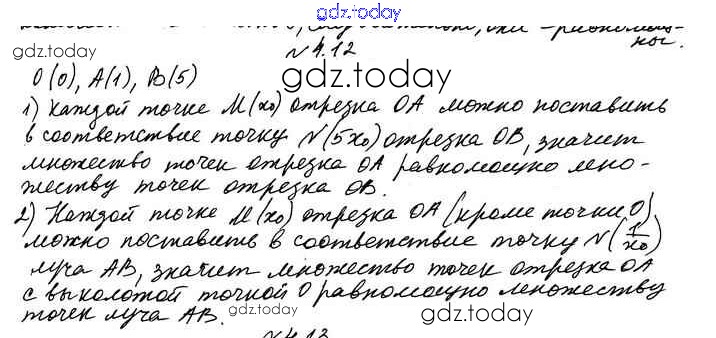 gdz.today
они - равномощ-
ны.
gdz.today
№ 4.12
gdz.today
O(0), A(1), B(5)
1) Каждой точке M(x₀) отрезка OA можно поставить
в соответствие точку N(5x₀) отрезка OB, значит
множество точек отрезка OA равномощно мно-
жеству точек отрезка OB.
gdz.today
2) Каждой точке M(x₀) отрезка OA (кроме точки O)
можно поставить в соответствие точку N(1/x₀)
луча AB, значит множество точек отрезка OA
с выколотой точкой O равномощно множеству
точек луча AB.
gdz.today
gdz.today
№ 4.13